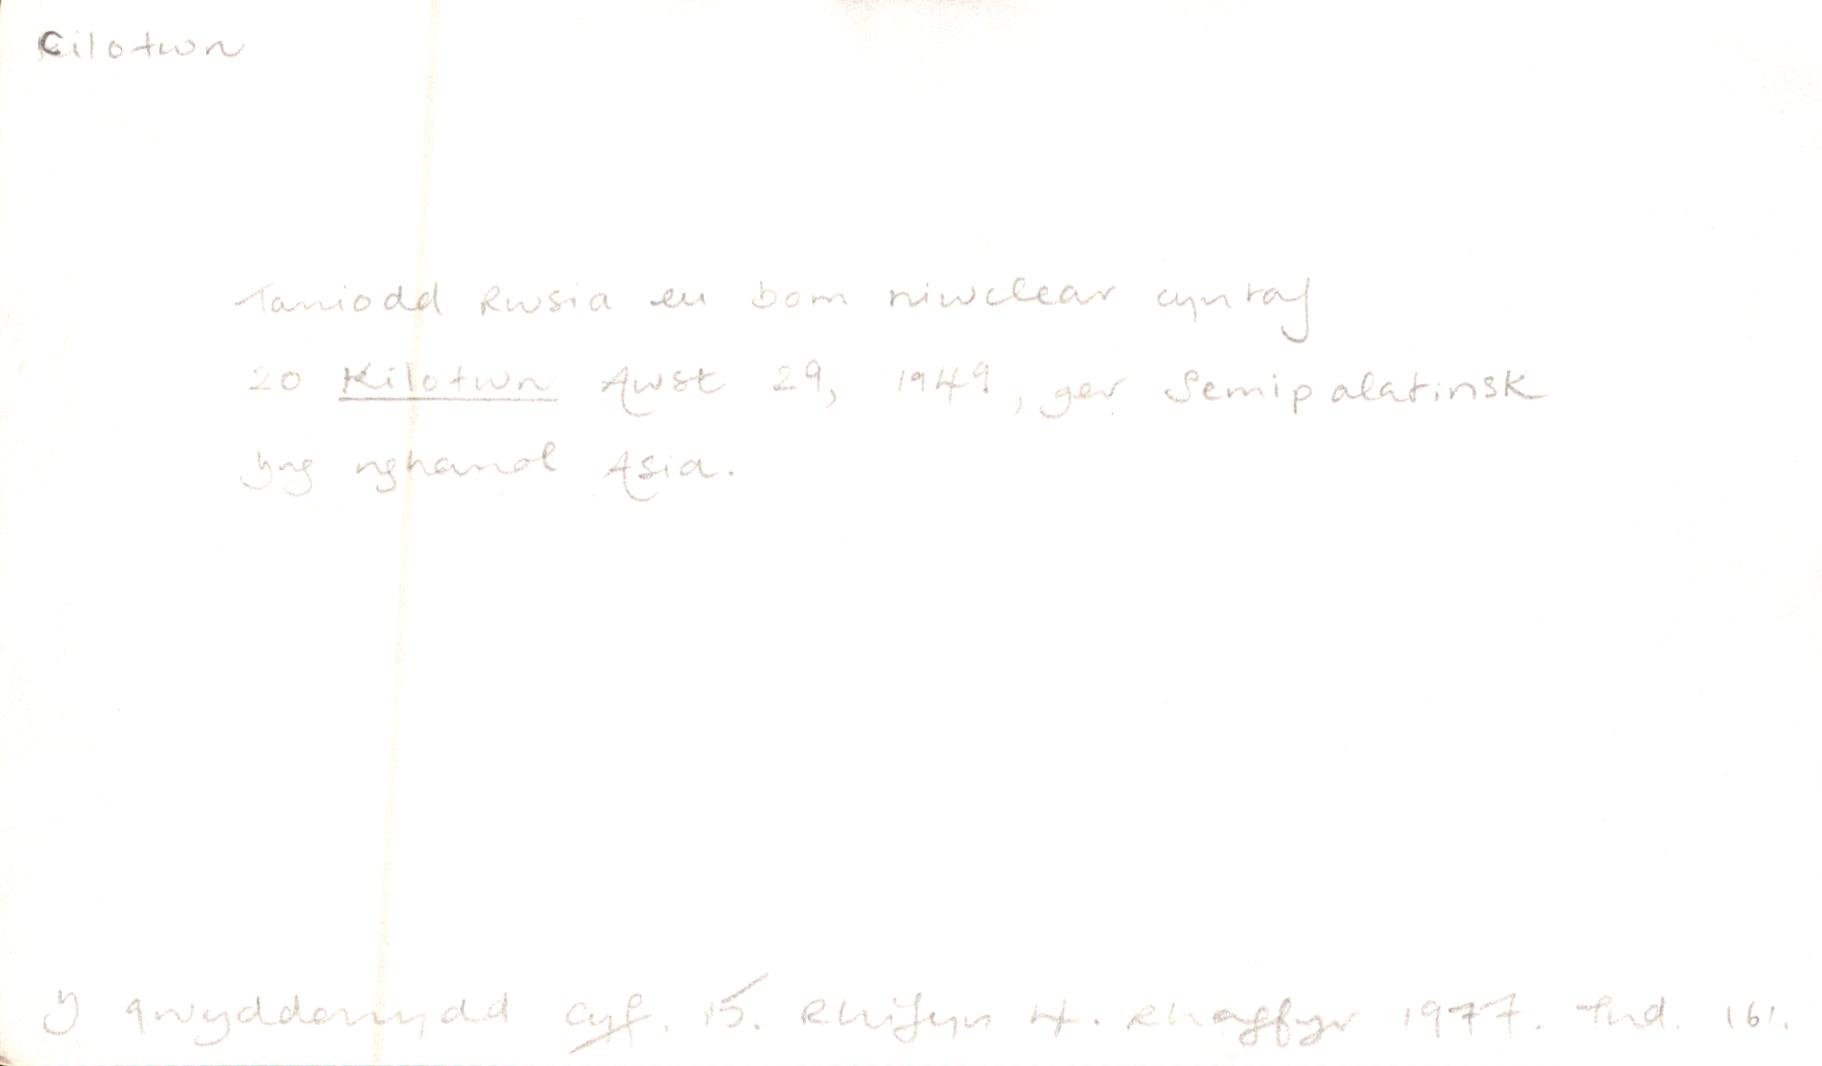 Cilotwn
Taniodd Rwsia eu bom niwclear cyntaf
20 Kilotwn Awst 29, 1949, ger Semipalatinsk
yng nghanol Asia.
Y gwyddonydd Cyf. 15. Rhifyn 4. Rhagfyr 1977. tud. 161.